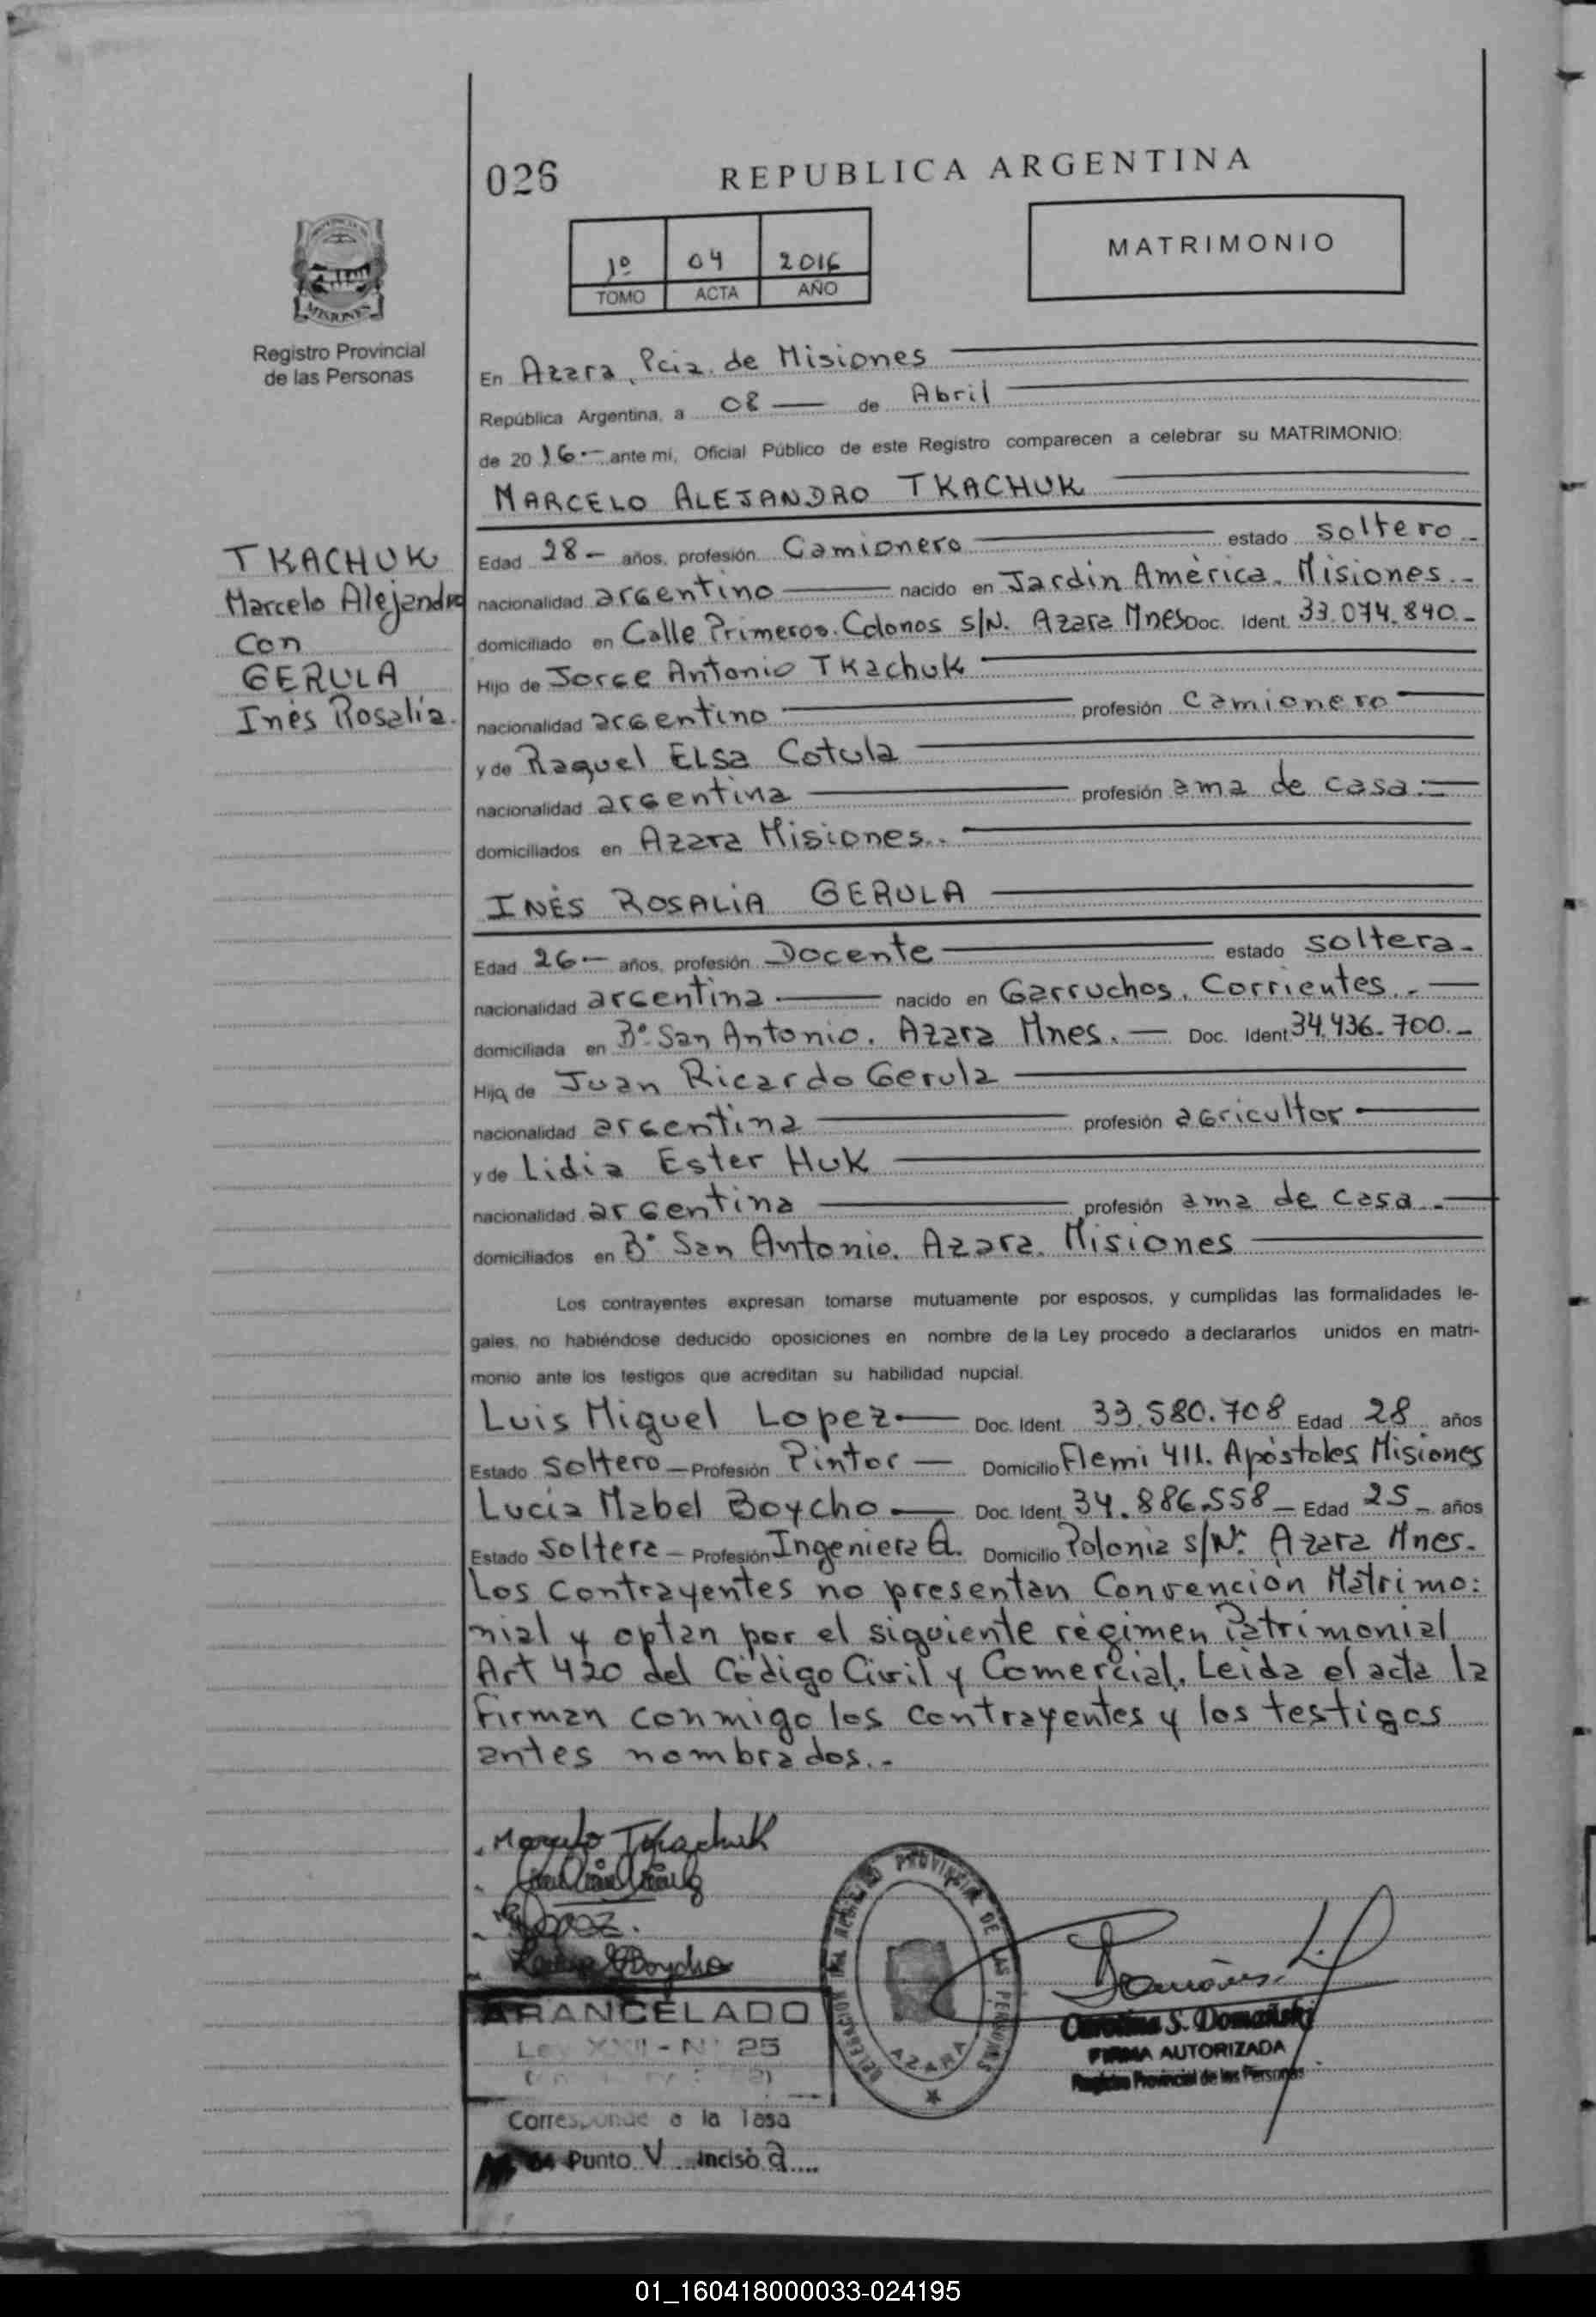 026
REPUBLICA ARGENTINA
1º 04 2016
TOMO ACTA AÑO
MATRIMONIO
Registro Provincial
de las Personas
TKACHUK
Marcelo Alejandro
Con
GERULA
Inés Rosalia.
En Azara, Pcia. de Misiones
República Argentina, a 08 — de Abril
de 2016.— ante mi, Oficial Público de este Registro comparecen a celebrar su MATRIMONIO:
MARCELO ALEJANDRO TKACHUK
Edad 28 — años, profesión Camionero estado soltero -
nacionalidad argentino nacido en Jardín América. Misiones.-
domiciliado en Calle Primeros. Colonos S/N. Azara Mnes Doc. Ident. 33.074.840.-
Hijo de Jorge Antonio Tkachuk
nacionalidad argentino profesión camionero
y de Raquel Elsa Cotula
nacionalidad argentina profesión ama de casa.—
domiciliados en Azara Misiones..
INÉS ROSALIA GERULA
Edad 26 — años, profesión Docente estado soltera.
nacionalidad argentina nacido en Garruchos, Corrientes.—
domiciliada en Bº San Antonio. Azara Mnes. — Doc. Ident. 34.436.700.-
Hija de Juan Ricardo Gerula
nacionalidad argentina profesión agricultor
y de Lidia Ester Huk
nacionalidad argentina profesión ama de casa.—
domiciliados en Bº San Antonio. Azara. Misiones
Los contrayentes expresan tomarse mutuamente por esposos, y cumplidas las formalidades le-
gales, no habiéndose deducido oposiciones en nombre de la Ley procedo a declararlos unidos en matri-
monio ante los testigos que acreditan su habilidad nupcial.
Luis Miguel Lopez — Doc. Ident. 33.580.708 Edad 28 años
Estado soltero — Profesión Pintor — Domicilio Flemi 411. Apóstoles Misiones
Lucía Mabel Boycho — Doc. Ident. 34.886.558 — Edad 25 — años
Estado soltera — Profesión Ingeniera Q. Domicilio Polonia s/Nº. Azara Mnes.
Los contrayentes no presentan Convención Matrimo:
nial y optan por el siguiente régimen Patrimonial
Art 420 del Código Civil y Comercial. Leida el acta la
firman conmigo los contrayentes y los testigos
antes nombrados.-
Marcelo Tkachuk
Lopez.
Boycho
DELEGACION DEL REGISTRO PROVINCIAL DE LAS PERSONAS
AZARA
ARANCELADO
Ley XXII - Nº 25
Corresponde a la Tasa
Punto V Inciso a
Carolina S. Domański
FIRMA AUTORIZADA
Registro Provincial de las Personas
01_160418000033-024195